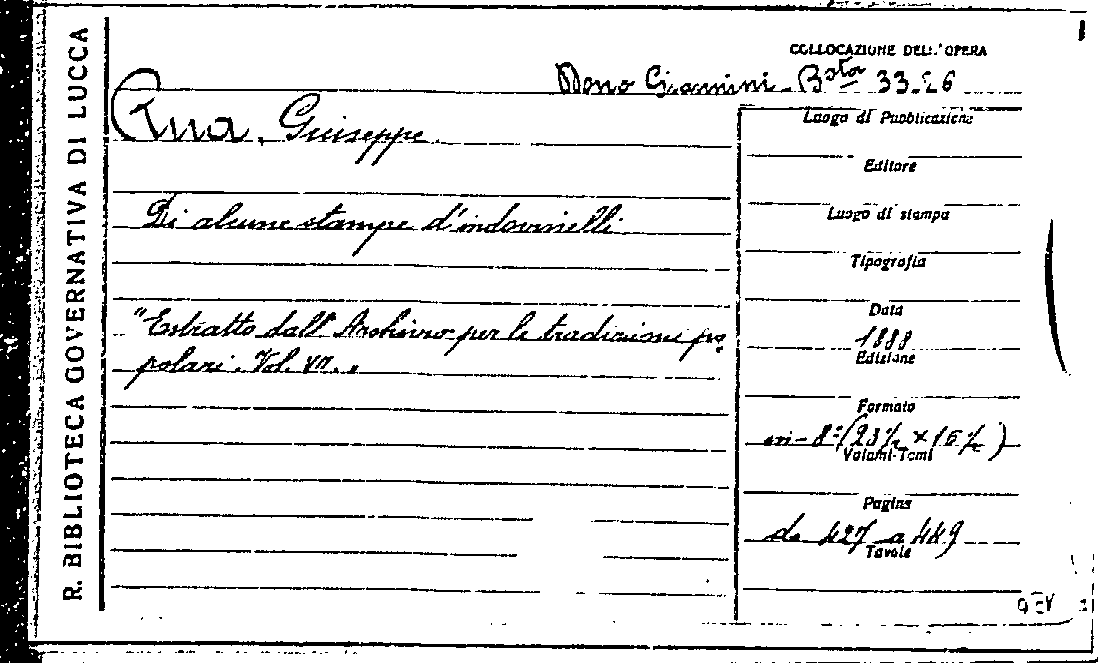 R. BIBLIOTECA GOVERNATIVA DI LUCCA
COLLOCAZIONE DELL'OPERA
Dono Giannini - B.sta 33.26
Giuseppe
Di alcune stampe d'indovinelli
"Estratto dall'Archivio per le tradizioni po
polari. Vol. VII.„
Luogo di Pubblicazione
Editore
Luogo di stampa
Tipografia
Data
1888
Edizione
Formato
in-8º (23½ × 15½)
Volumi-Tomi
Pagine
da 427 a 449
Tavole